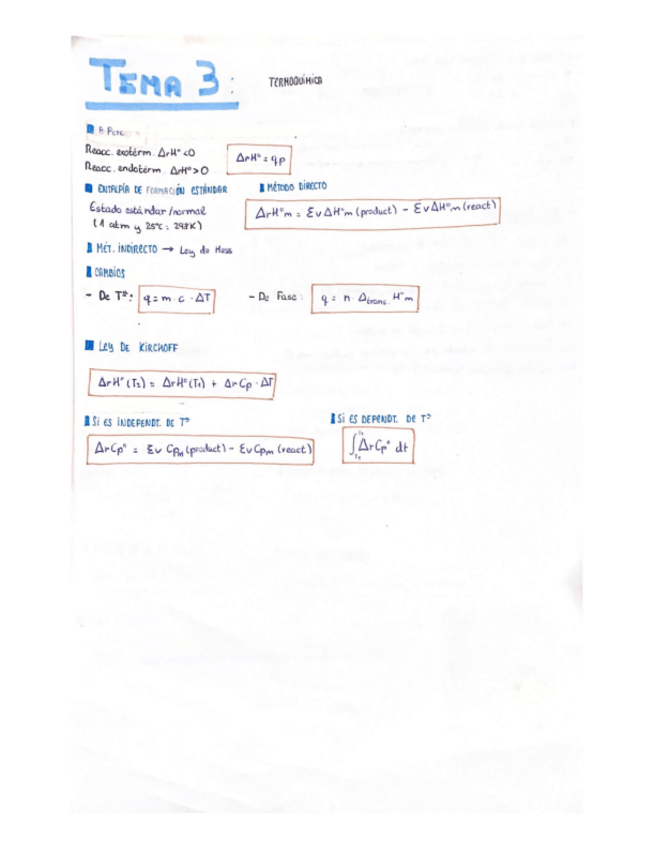 TEMA 3: TERMOQUÍMICA
A P cte
Reacc. exotérm. ΔrH° <0
Reacc. endotérm. ΔrH° >0
ΔrH° = qp
ENTALPÍA DE FORMACIÓN ESTÁNDAR
Estado estándar/normal
(1 atm y 25°C: 298K)
MÉTODO DIRECTO
ΔrH°m = Σv ΔH°m (product) - Σv ΔH°m (react)
MÉT. INDIRECTO → Ley de Hess
CAMBIOS
- De Tª: q = m · c · ΔT
- De Fase: q = n · Δtrans. H°m
LEY DE KIRCHOFF
ΔrH° (T2) = ΔrH° (T1) + ΔrCp · ΔT
SI ES INDEPENDT. DE Tª
ΔrCp° = Σv Cpm (product) - Σv Cpm (react)
SI ES DEPENDT. DE Tª
∫ ΔrCp° dt